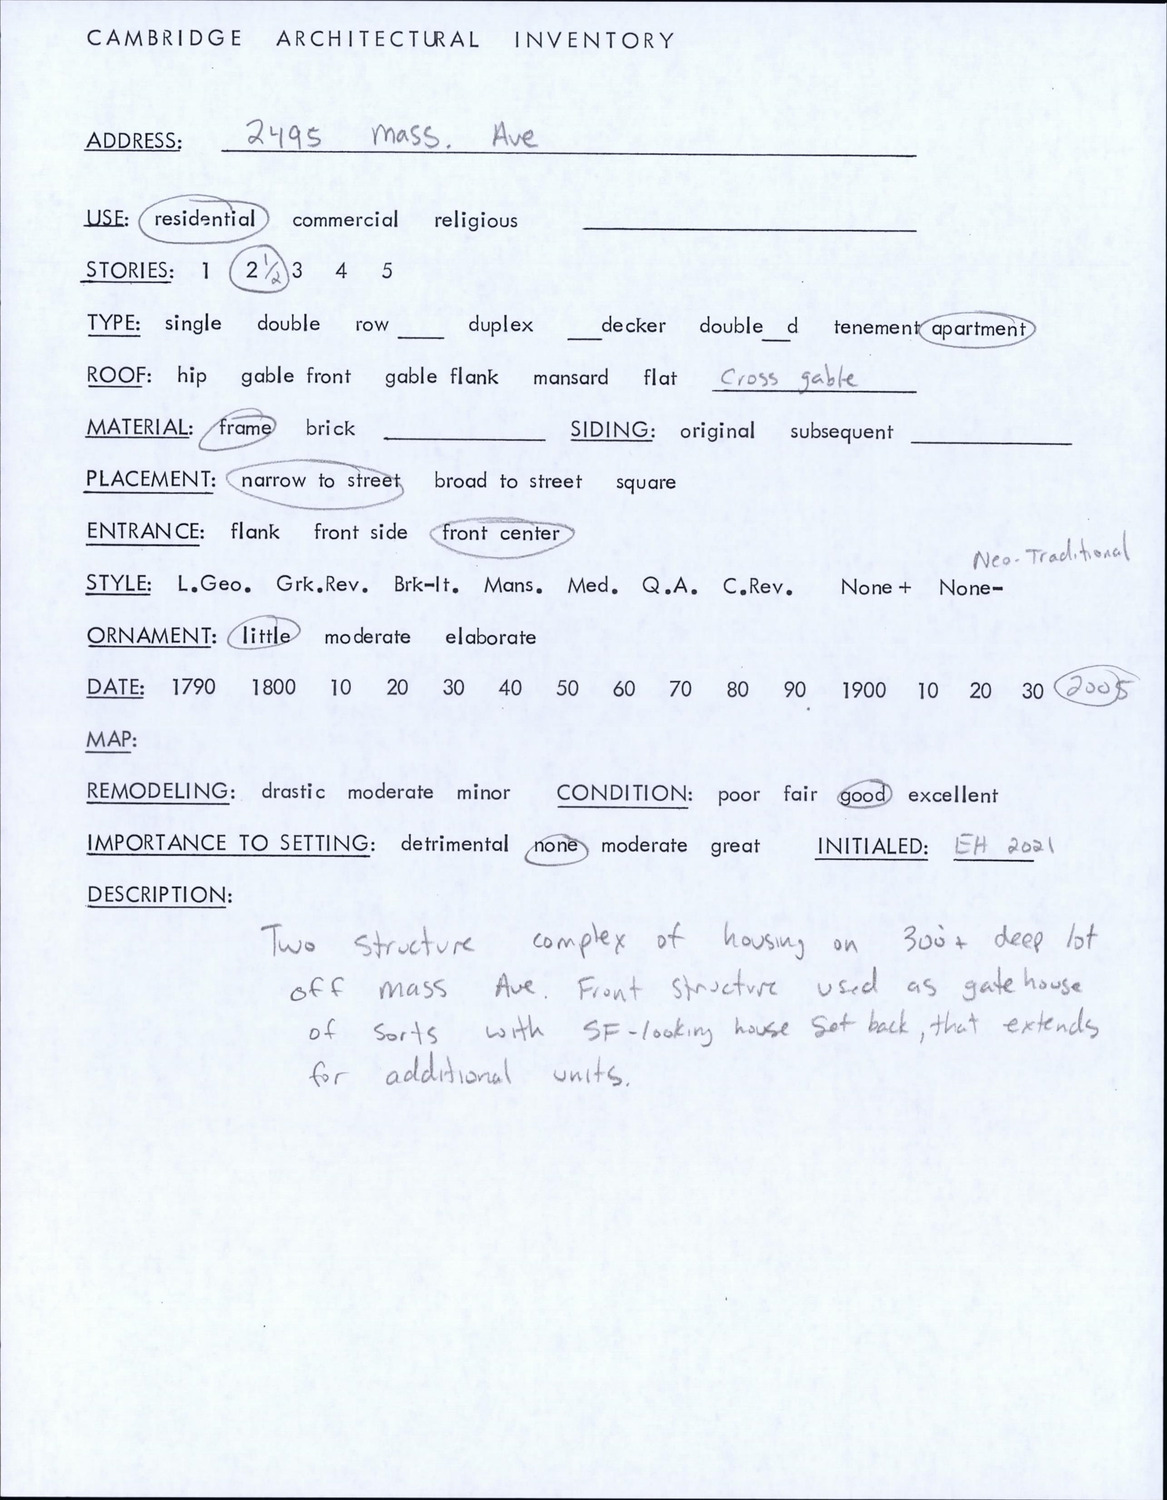 CAMBRIDGE ARCHITECTURAL INVENTORY
ADDRESS: 2495 Mass. Ave
USE: residential commercial religious
STORIES: 1 2 1/2 3 4 5
TYPE: single double row ___ duplex ___decker double__d tenement apartment
ROOF: hip gable front gable flank mansard flat Cross gable
MATERIAL: frame brick ___ SIDING: original subsequent ___
PLACEMENT: narrow to street broad to street square
ENTRANCE: flank front side front center
Neo-Traditional
STYLE: L.Geo. Grk.Rev. Brk-It. Mans. Med. Q.A. C.Rev. None+ None-
ORNAMENT: little moderate elaborate
DATE: 1790 1800 10 20 30 40 50 60 70 80 90 1900 10 20 30 2005
MAP:
REMODELING: drastic moderate minor CONDITION: poor fair good excellent
IMPORTANCE TO SETTING: detrimental none moderate great INITIALED: EH 2021
DESCRIPTION:
Two structure complex of housing on 300+ deep lot
off Mass Ave. Front structure used as gate house
of sorts with SF-looking house set back, that extends
for additional units.